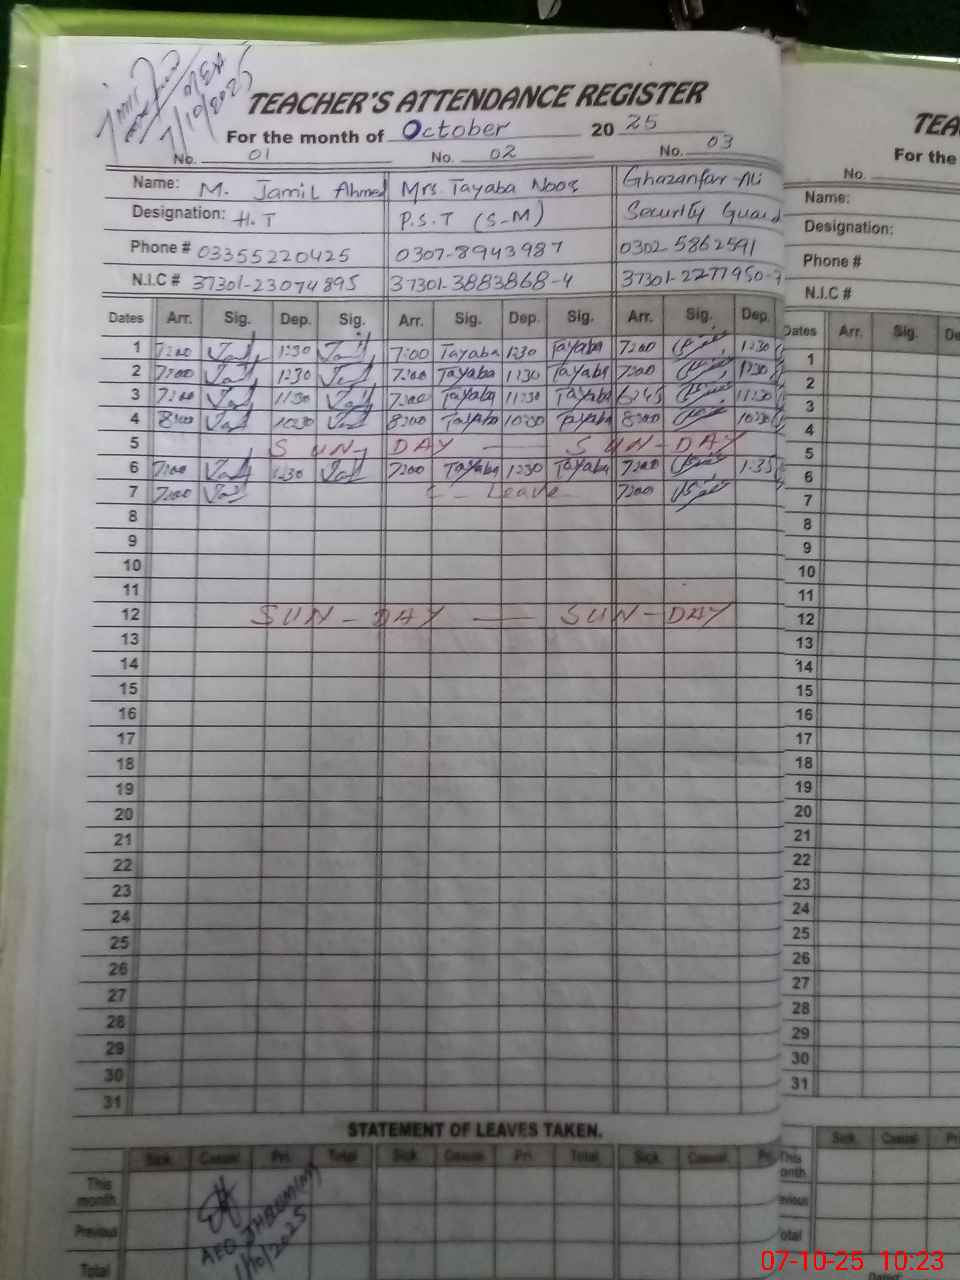 7/10/2025
TEACHER'S ATTENDANCE REGISTER
For the month of October 2025
No. 01 No. 02 No. 03
Name: M. Jamil Ahmed Mrs. Tayaba Noor Ghazanfar Ali
Designation: H.T P.S.T (S-M) Security Guard
Phone # 03355220425 0307-8943987 0302-5862591
N.I.C # 37301-23074895 37301-3883868-4 37301-2277950-7
Dates Arr. Sig. Dep. Sig. Arr. Sig. Dep. Sig. Arr. Sig. Dep.
1 7:00 1:30 7:00 Tayaba 1:30 Tayaba 7:00 1:30
2 7:00 1:30 7:00 Tayaba 1:30 Tayaba 7:00 1:30
3 7:00 11:30 7:00 Tayaba 11:30 Tayaba 6:45 11:30
4 8:00 10:30 8:00 Tayaba 10:30 Tayaba 8:00 10:30
5 SUN-DAY — SUN-DAY
6 7:00 1:30 7:00 Tayaba 1:30 Tayaba 7:00 1:35
7 7:00 C-Leave 7:00
8
9
10
11
12 SUN-DAY — SUN-DAY
13
14
15
16
17
18
19
20
21
22
23
24
25
26
27
28
29
30
31
STATEMENT OF LEAVES TAKEN.
Sick. Casual. Pri. Total Sick. Casual. Pri. Total Sick. Casual. Pri.
This month
Previous
Total
AEO
1/10/2025
TEA
For the
No.
Name:
Designation:
Phone #
N.I.C #
Dates Arr. Sig. De
1
2
3
4
5
6
7
8
9
10
11
12
13
14
15
16
17
18
19
20
21
22
23
24
25
26
27
28
29
30
31
Sick. Casual. Pri
This
onth.
evious
otal
07-10-25 10:23